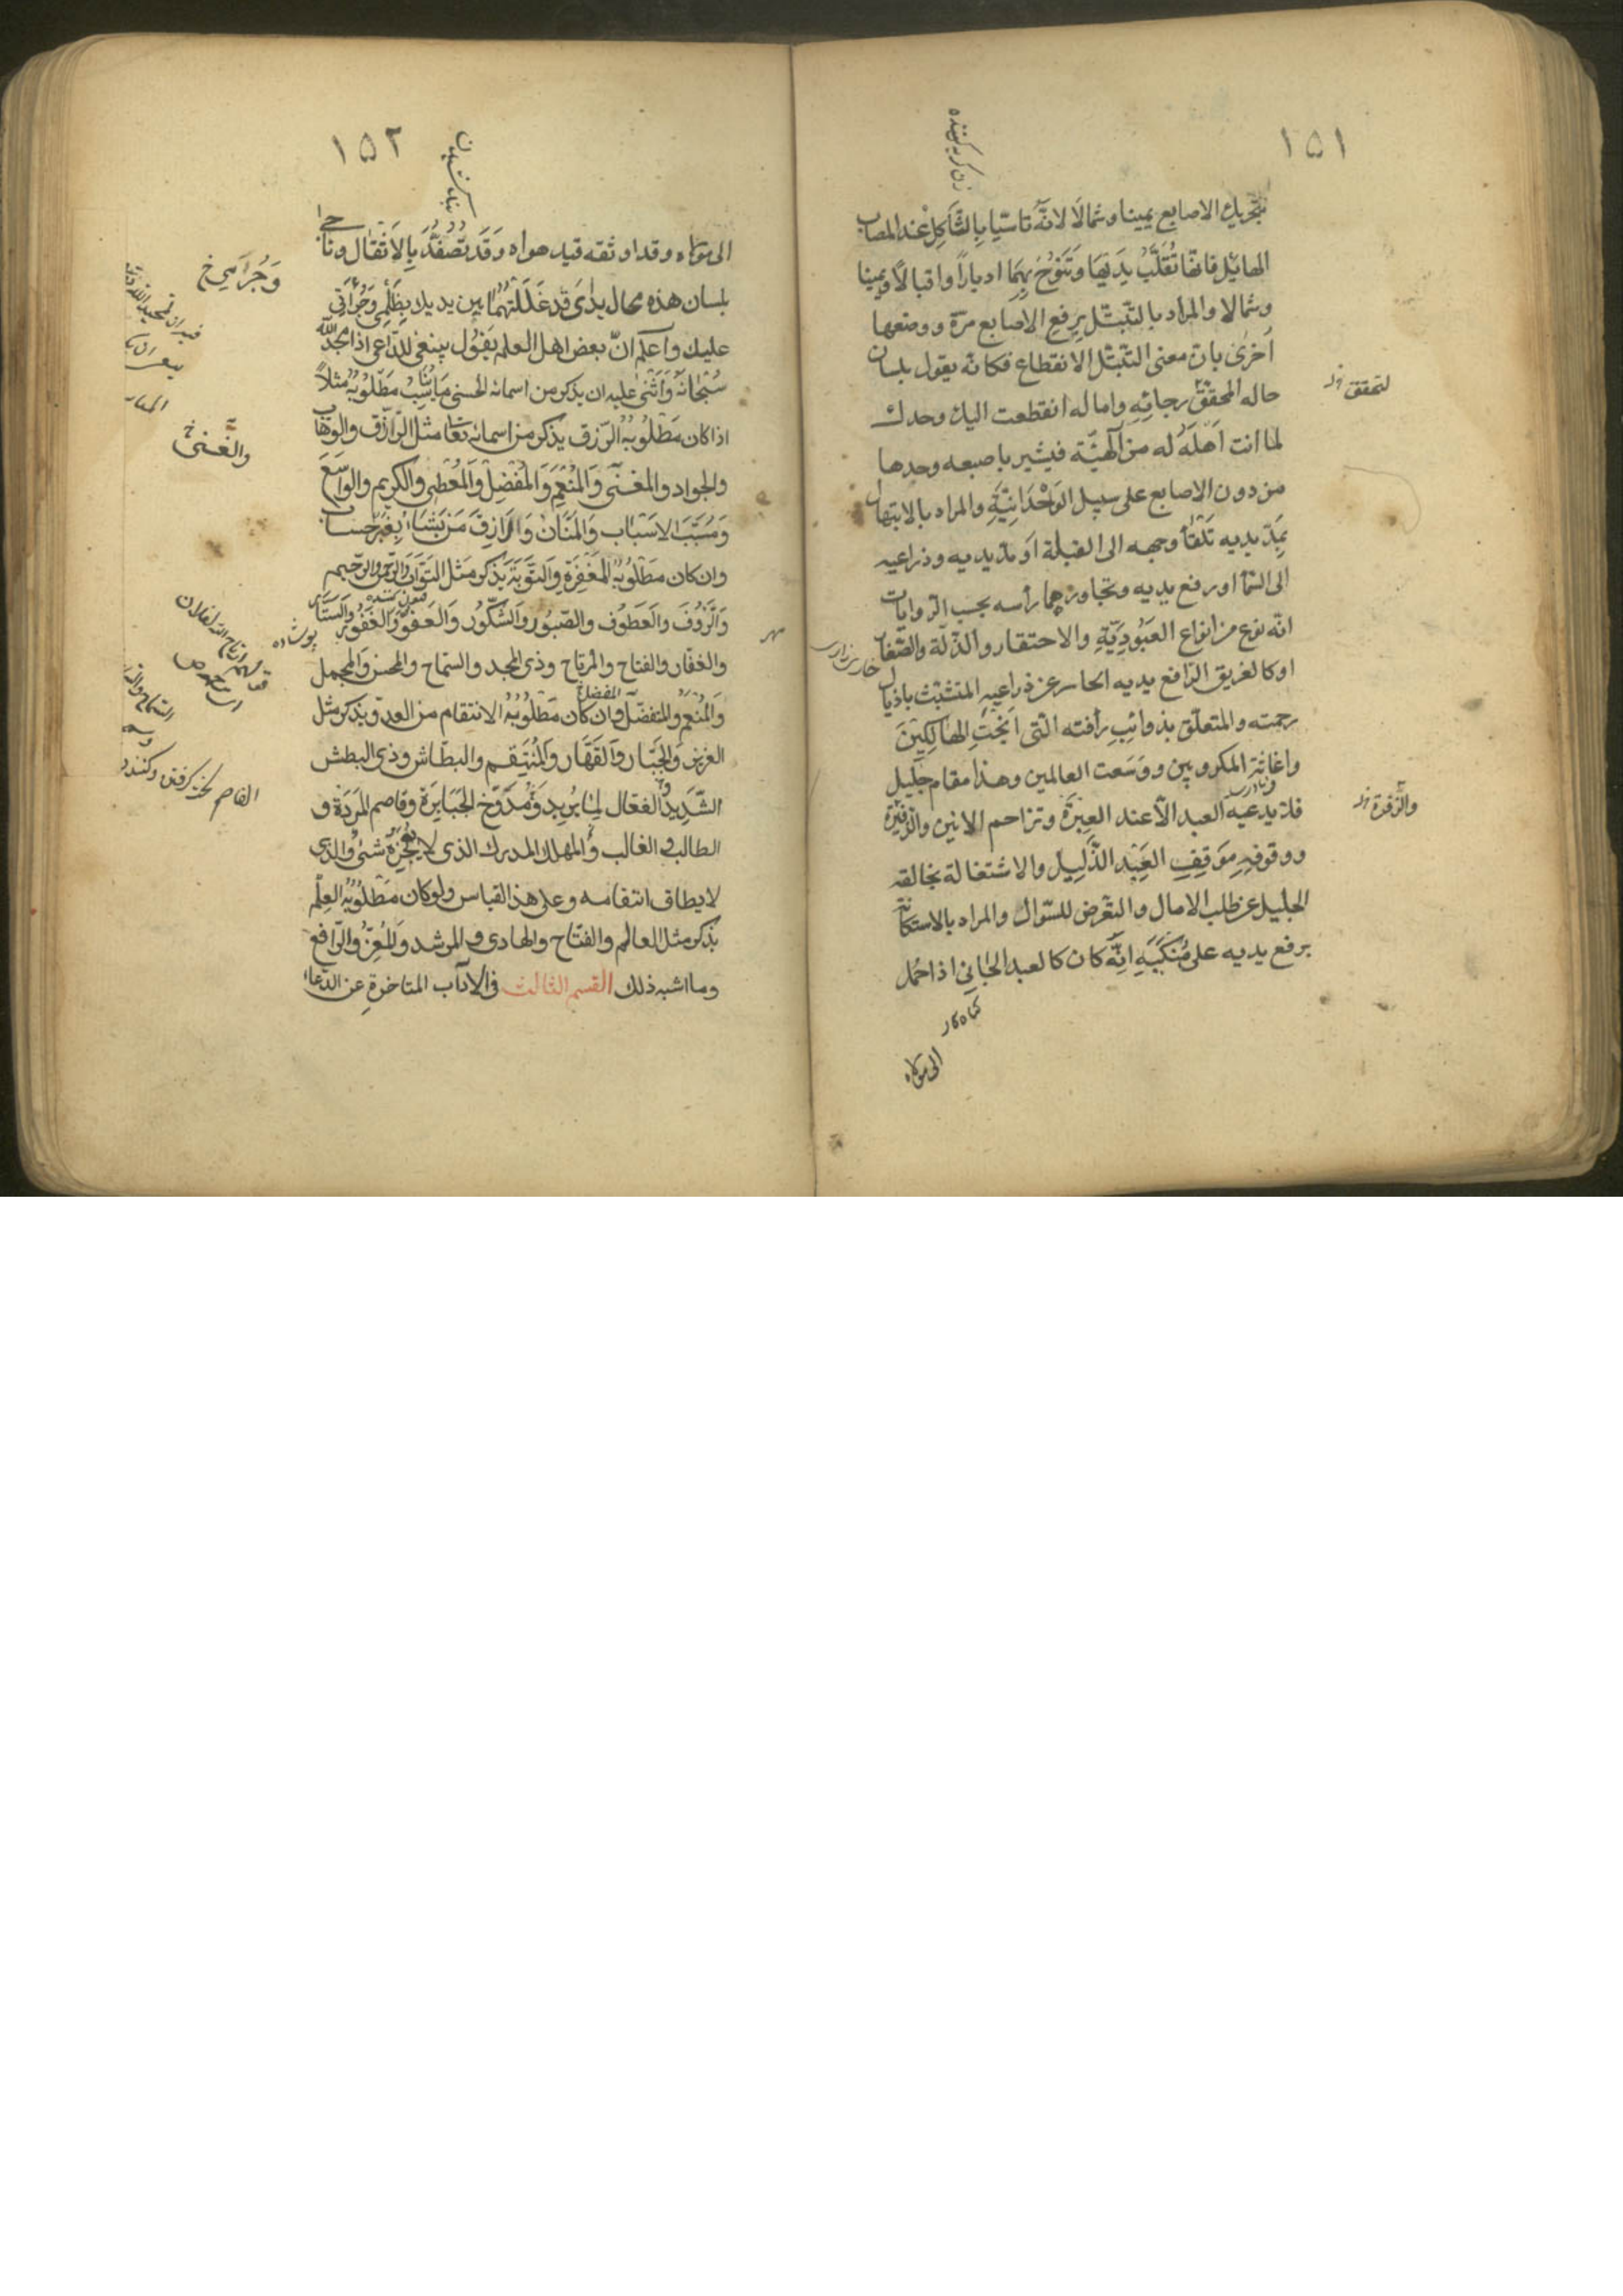 ١٥١
زن کریه کننده
بتحريك الاصابع يمينا وشمالا لانه تاسيا بالثاكل عند المصاب
الهائل فانها تقلب يديها وتنوح بهما ادبارا واقبالا ويمينا
وشمالا والمراد بالتبتل برفع الاصابع مرة ووضعها
اخرى بان معنى التبتل الانقطاع فكانه يقول بلسان
حاله المحقق رجائه واماله انقطعت اليك وحدك
لتحقق
لما انت اهله له من الهية فيشير باصبعه وحدها
من دون الاصابع على سبيل الوحدانية والمراد بالابتهال
بمد يديه تلقاء وجهه الى القبلة او مد يديه وذراعيه
الى السماء او رفع يديه وتجاوزهما راسه بحسب الروايات
انه نوع من انواع العبودية والاحتقار والذلة والصغار
او كالغريق الرافع يديه الحاسر عن ذراعيه المتشبث باذيال
رحمته والمتعلق بذوائب رأفته التى انجت الهالكين
واغاثت المكروبين ووسعت العالمين وهذا مقام جليل
فلا يدعيه العبد الا عند العبرة وتزاحم الانين والزفرة
والزفرة
ووقوفه موقف العبد الذليل والاشتغالة بخالقه
الجليل عن طلب الامال والتعرض للسؤال والمراد بالاستكانة
برفع يديه على منكبيه انه كان كالعبد الجانى اذا حمل
كناه كار
الى مولاه
١٥٢
الى مولاه وقد اوثقه قيد هواه وقد تصفد بالاثقال وناجى
بلسان هذه حال يداى قد غللتهما بين يديك بظلمى وجرأتى
وجرامى خ
عليك واعلم ان بعض اهل العلم يقول ينبغى للداعى اذا مجد الله
سبحانه واثنى عليه ان يذكر من اسمائه الحسنى ما يناسب مطلوبه مثلا
اذا كان مطلوبه الرزق يذكر من اسمائه تعا مثل الرزاق والوهاب
والغنى خ
والجواد والمغنى والمنعم والمفضل والمعطى والكريم والواسع
ومسبب الاسباب والمنان والرازق من يشاء بغير حساب
وان كان مطلوبه المغفرة والتوبة يذكر مثل التواب والرحمن والرحيم
والرؤف والعطوف والصبور والشكور والعفو والغفور والستار
والغفار والفتاح والمرتاح وذى المجد والسماح والمحسن والمجمل
والمنعم والمتفضل وان كان مطلوبه الانتقام من العدو يذكر مثل
المفضل
العزيز والجبار والقهار والمنتقم والبطاش وذى البطش
الشديد والفعال لما يريد ومدوخ الجبابرة وقاصم المردة و
الطالب الغالب والمهلك المدرك الذى لا يعجزه شئ والذى
لا يطاق انتقامه وعلى هذا القياس ولو كان مطلوبه العلم
يذكر مثل العالم والفتاح والهادى والمرشد والمعز والرافع
وما اشبه ذلك القسم الثالث فى الاداب المتاخرة عن الدعاء